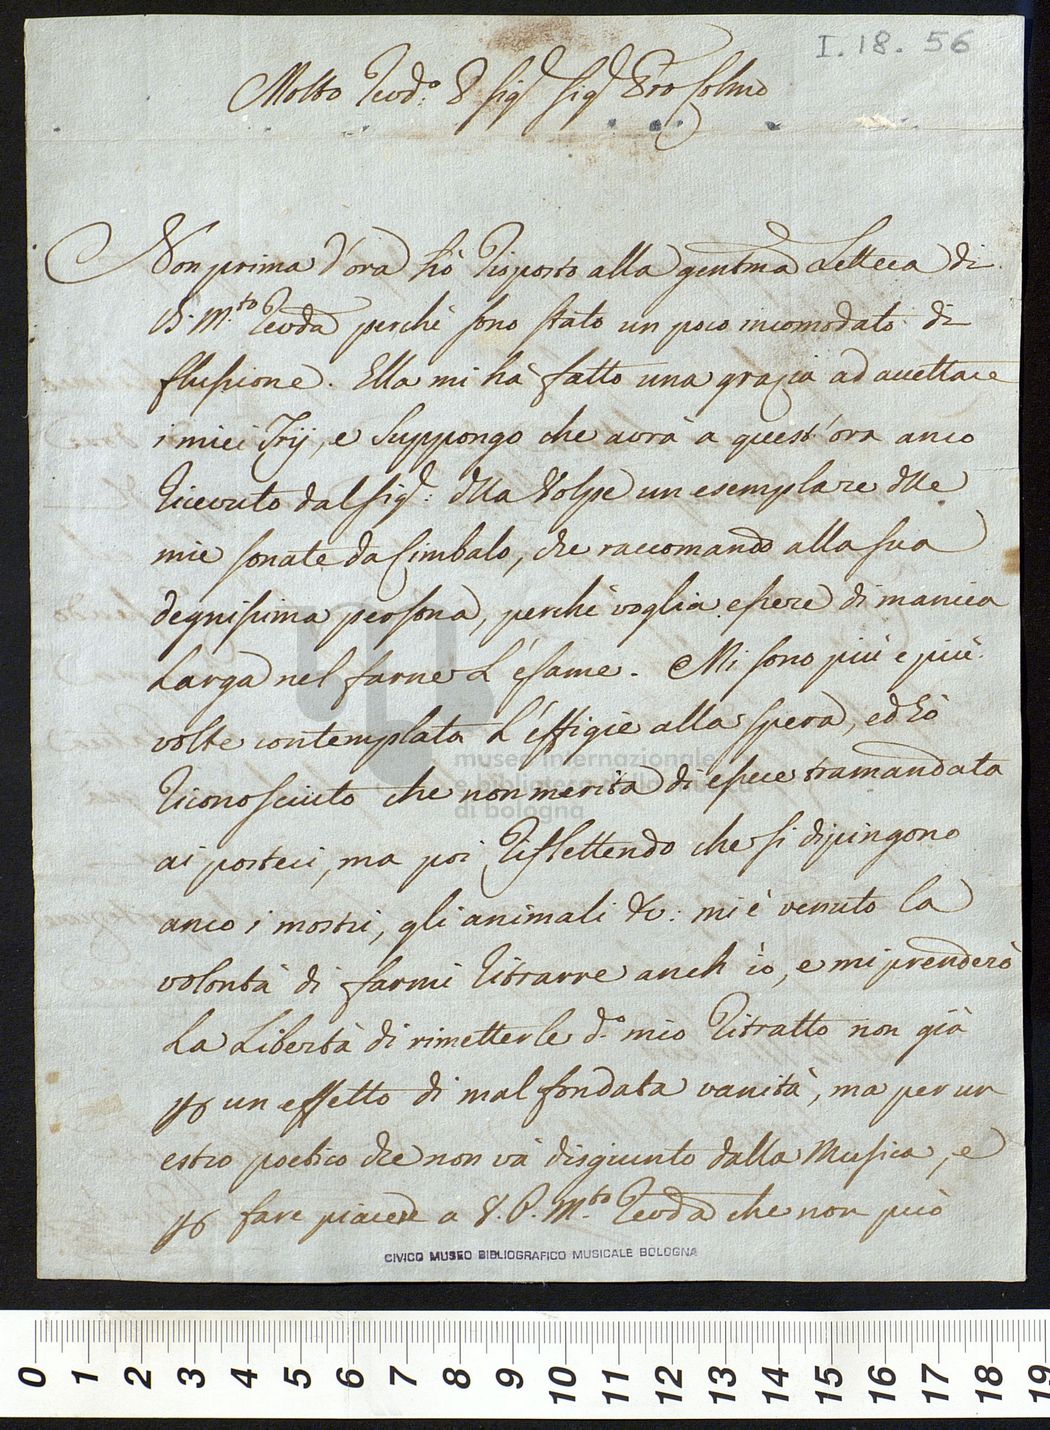 I. 18. 56
Molto Revd.o P. Sigr Sigr Pro Colmo
Non prima d'ora hò risposto alla gentma Lettera di
P. M.to Revda perchè sono stato un poco incomodato di
flussione. Ella mi hà fatto una grazia ad accettare
i miei Trij, e suppongo che avrà a quest'ora anco
ricevuto dal Sigr: dlla Volpe un esemplare dlle
mie sonate da Cimbalo, che raccomando alla sua
degnissima persona, perchè voglia essere di manica
larga nel farne l'esame. Mi sono più e più
volte contemplata l'effigie alla spera, ed hò
riconosciuto che non merita di essere tramandata
ai posteri, ma poi riflettendo che si dipingono
anco i mostri, gli animali &c: mi è venuto la
volontà di farmi ritrarre anch'io, e mi prenderò
la libertà di rimetterle d.o mio ritratto non già
p un effetto di mal fondata vanità, ma per un
estro poetico che non và disgiunto dalla Musica, e
p fare piacere a V. P. M.to Revda che non può
CIVICO MUSEO BIBLIOGRAFICO MUSICALE BOLOGNA
museo internazionale
e biblioteca della musica
di bologna
0 1 2 3 4 5 6 7 8 9 10 11 12 13 14 15 16 17 18 19